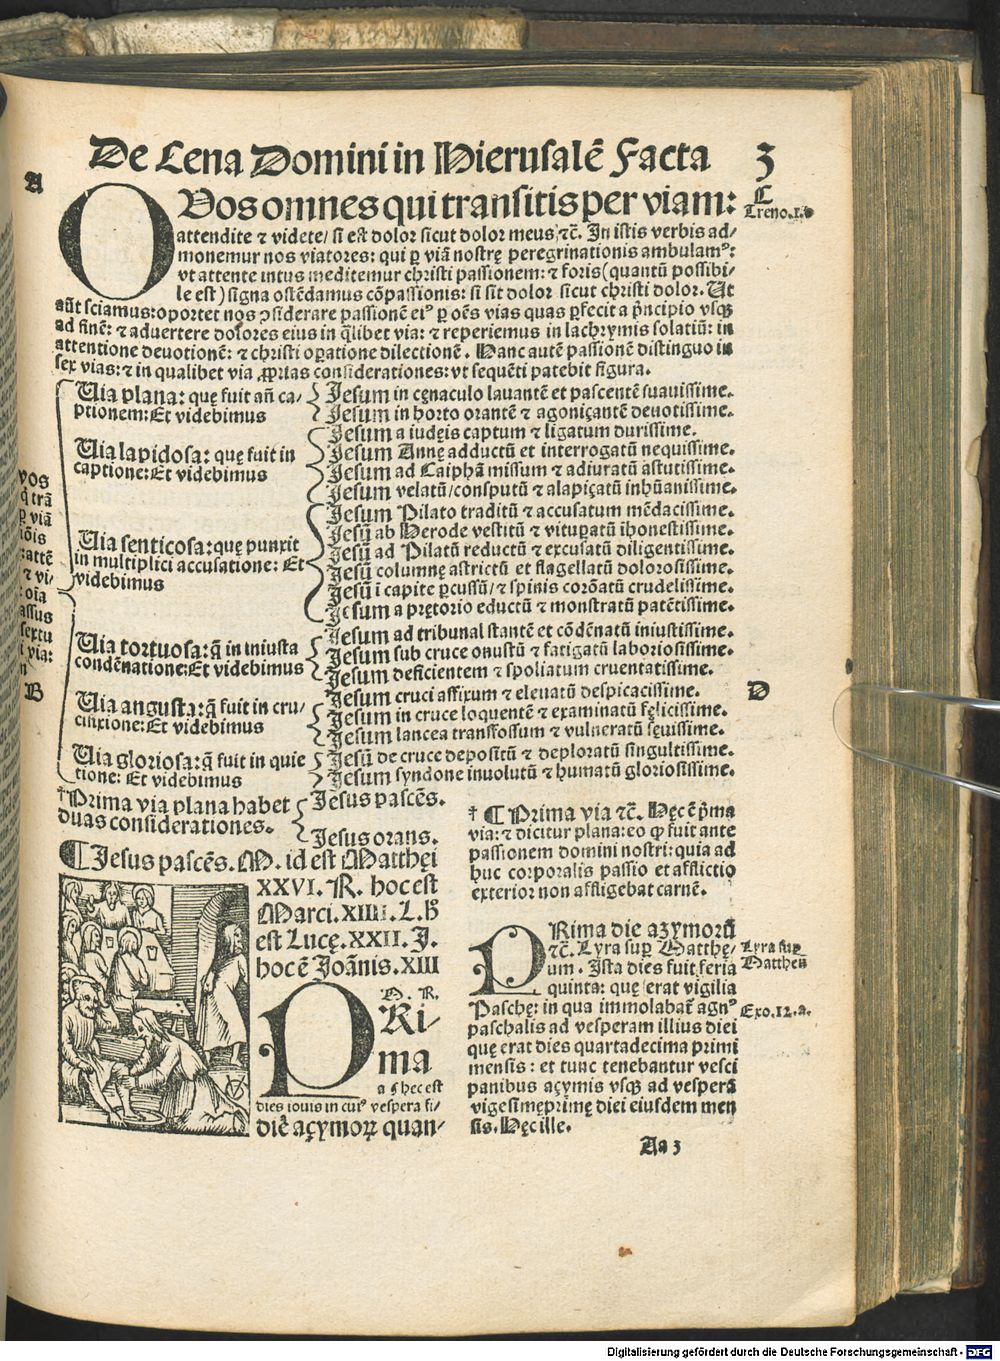 De Cena Domini in Hierusalē Facta
3
A
O Vos omnes qui transitis per viam:
C
Treno.1.
attendite ⁊ videte/ si est dolor sicut dolor meus ⁊c̄. In istis verbis ad-
monemur nos viatores: qui ꝑ viā nostrę peregrinationis ambulamꝰ:
vt attente intus meditemur christi passionem: ⁊ foris (quantū possibi-
le est) signa ostēdamus cōpassionis: si sit dolor sicut christi dolor. Ut
aūt sciamus: oportet nos ꝯsiderare passionē eiꝰ ꝑ oēs vias quas ꝑfecit a p̄ncipio vsqꝫ
ad finē: ⁊ aduertere dolores eius in q̄libet via: ⁊ reperiemus in lachrymis solatiū: in
attentione deuotionē: ⁊ christi oꝑatione dilectionē. Hanc autē passionē distinguo in
sex vias: ⁊ in qualibet via ꝓprias considerationes: vt sequēti patebit figura.
Via plana: quę fuit añ ca-
ptionem: Et videbimus
Jesum in cęnaculo lauantē et pascentē suauissime.
Jesum in horto orantē ⁊ agoniçantē deuotissime.
Via lapidosa: quę fuit in
captione: Et videbimus
Jesum a iudęis captum ⁊ ligatum durissime.
Jesum Annę adductū et interrogatū nequissime.
Jesum ad Caiphā missum ⁊ adiuratū astutissime.
Jesum velatū/consputū ⁊ alapiçatū inhūanissime.
Via senticosa: quę punxit
in multiplici accusatione: Et
videbimus
Jesum Pilato traditū ⁊ accusatum mēdacissime.
Jesū ab Herode vestitū ⁊ vituꝑatū ihonestissime.
Jesū ad Pilatū reductū ⁊ excusatū diligentissime.
Jesū columnę astrictū et flagellatū dolorosissime.
Jesū ī capite ꝑcussū/ ⁊ spinis coroātū crudelissime.
Jesum a prętorio eductū ⁊ monstratū patētissime.
Via tortuosa: q̄ in iniusta
condēnatione: Et videbimus
Jesum ad tribunal stantē et cōdēnatū iniustissime.
Jesum sub cruce onustū ⁊ fatigatū laboriosissime.
Jesum deficientem ⁊ spoliatum cruentatissime.
Via angusta: q̄ fuit in cru-
cifixione: Et videbimus
Jesum cruci affixum ⁊ eleuatū despicacissime.
Jesum in cruce loquentē ⁊ examinatū fęlicissime.
Jesum lancea transfossum ⁊ vulneratū sęuissime.
D
Via gloriosa: q̄ fuit in quie
tione: Et videbimus
Jesū de cruce depositū ⁊ deploratū singultissime.
Jesum syndone inuolutū ⁊ humatū gloriosissime.
†Prima via plana habet
duas considerationes.
Jesus pascēs.
Jesus orans.
¶Jesus pascēs. M. id est Matthęi
XXVI. R. hoc est
Marci. XIIII. L. h̄
est Lucę. XXII. J.
hoc ē Joānis. XIII
M. R.
PRi-
ma
a ꝗ hec est
dies iouis in cuiꝰ vespera fi-
diē açymoꝝ quan-
† ¶Prima via ⁊c̄. Hęc ē p̄ma
via: ⁊ dicitur plana: eo ꝙ fuit ante
passionem domini nostri: quia ad
huc corporalis passio et afflictio
exterior non affligebat carnē.
PRima die azymorū
⁊c̄. Lyra suꝑ Matthę/
um. Ista dies fuit feria
quinta: quę erat vigilia
Paschę: in qua immolabat̄ agnꝰ
paschalis ad vesperam illius diei
quę erat dies quartadecima primi
mensis: et tunc tenebantur vesci
panibus açymis vsqꝫ ad vesperā
vigesimęprimę diei eiusdem men
sis. Hęc ille.
Lyra suꝑ
Mattheū
Exo.12.a.
Aa 3
vos
q̄ trā
ꝑ viā
:attē
⁊ vi/
: oīa
assus
sextu
i via:
n
B
Digitalisierung gefördert durch die Deutsche Forschungsgemeinschaft - DFG